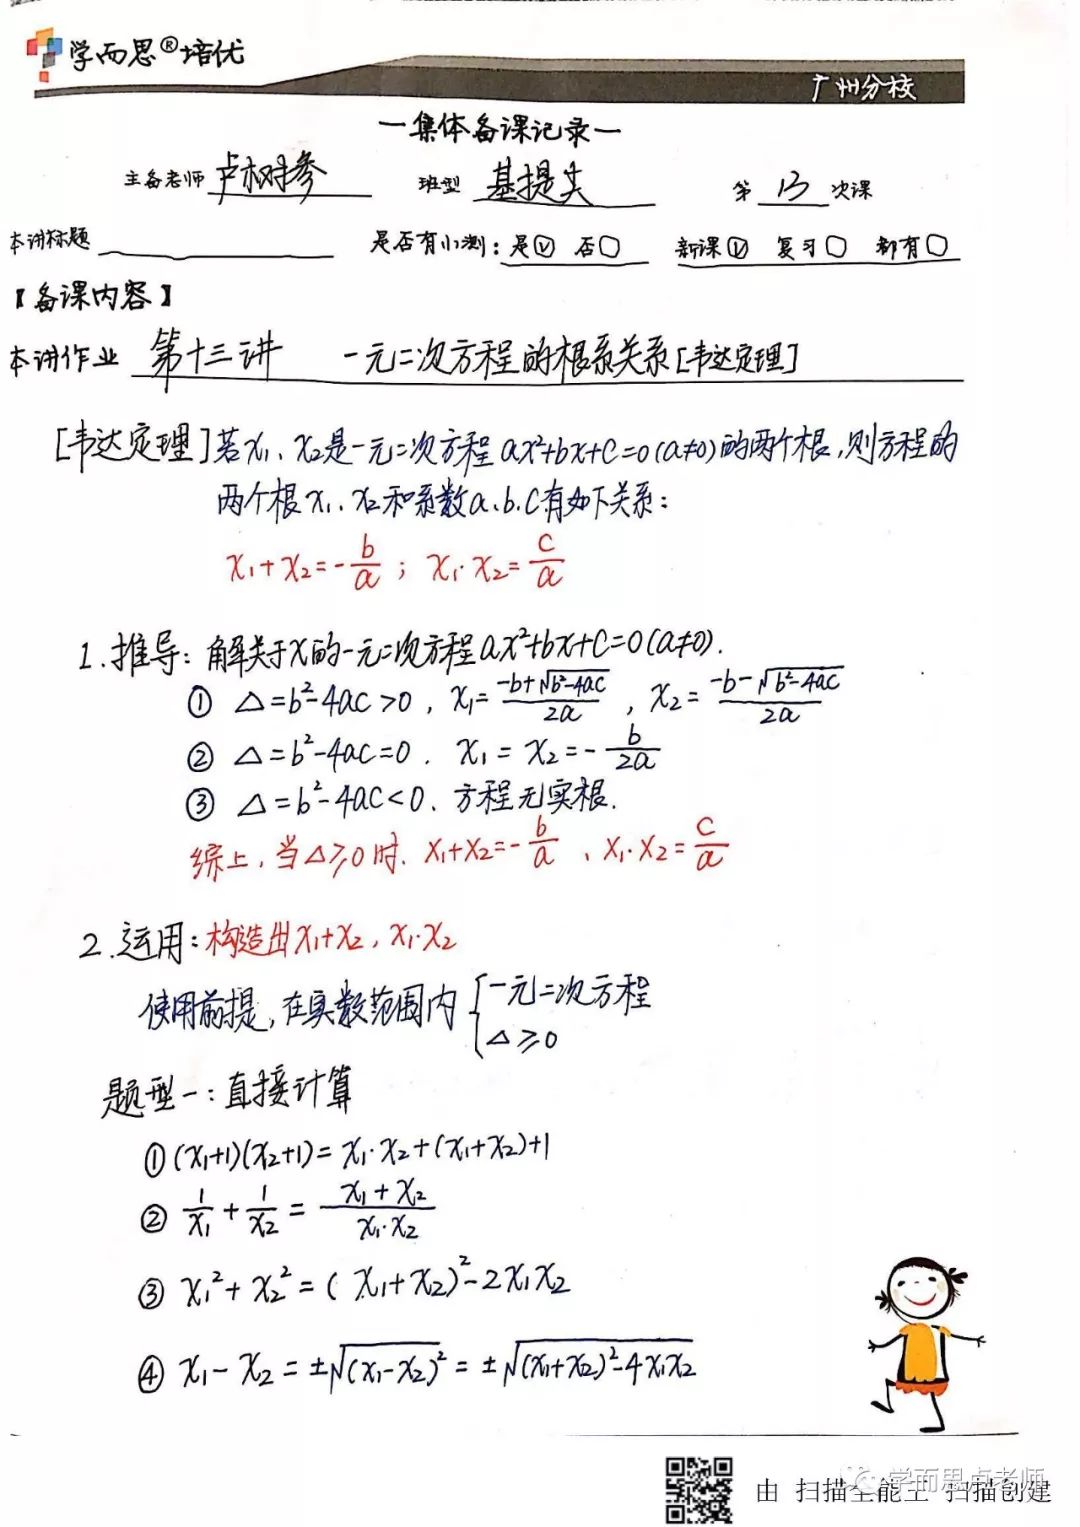 学而思®培优
广州分校
—集体备课记录—
主备老师 卢树参 班型 基提尖 第 13 次课
本讲标题 是否有小测：是☑ 否○ 新课☑ 复习○ 都有○
【备课内容】
本讲作业 第十三讲 一元二次方程的根系关系[韦达定理]
[韦达定理]若x₁、x₂是一元二次方程ax²+bx+c=0(a≠0)的两个根,则方程的
两个根x₁、x₂和系数a、b、c有如下关系：
x₁+x₂=-b/a；x₁·x₂=c/a
1.推导：解关于x的一元二次方程ax²+bx+c=0(a≠0).
① △=b²-4ac>0，x₁=(-b+√(b²-4ac))/2a，x₂=(-b-√(b²-4ac))/2a
② △=b²-4ac=0．x₁=x₂=-b/2a
③ △=b²-4ac<0．方程无实根.
综上，当△≥0时．x₁+x₂=-b/a、x₁·x₂=c/a
2.运用：构造出x₁+x₂，x₁·x₂
使用前提，在实数范围内{一元二次方程
△≥0
题型一：直接计算
①(x₁+1)(x₂+1)=x₁·x₂+(x₁+x₂)+1
② 1/x₁+1/x₂=(x₁+x₂)/(x₁·x₂)
③ x₁²+x₂²=(x₁+x₂)²-2x₁x₂
④ x₁-x₂=±√(x₁-x₂)²=±√((x₁+x₂)²-4x₁x₂)
学而思卢老师
由 扫描全能王 扫描创建